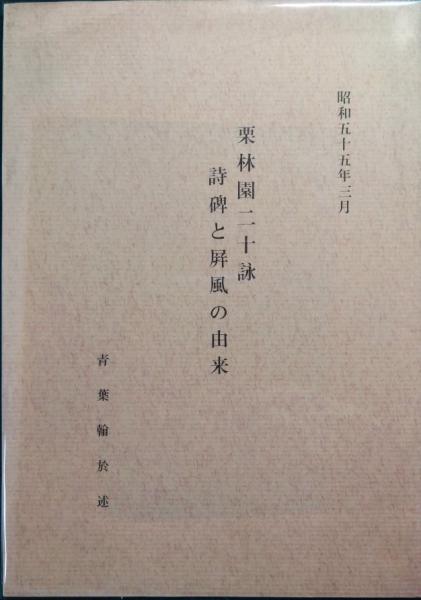 昭和五十五年三月
栗林園二十詠
詩碑と屏風の由来
青葉翰於述